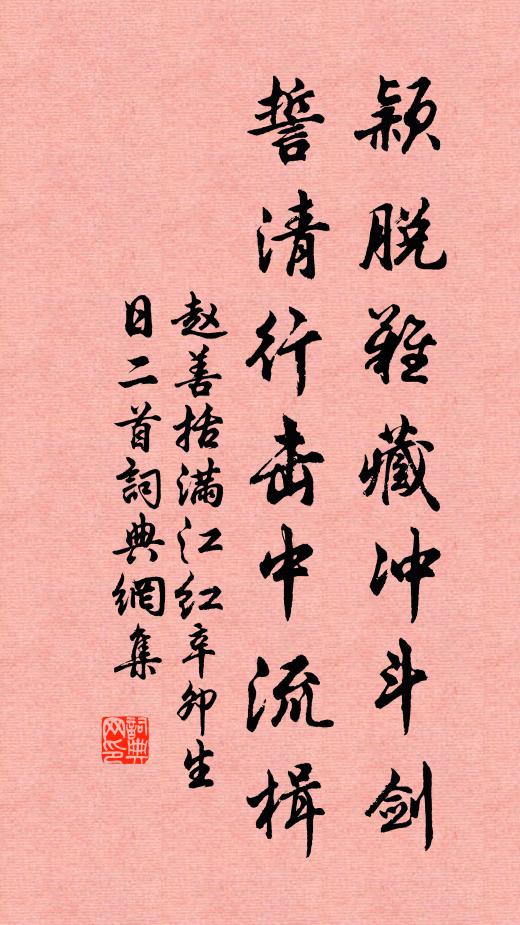 颖脱难藏冲斗剑
誓清行击中流楫
赵善括满江红辛卯生
日二首詞典網集
詞典
网印